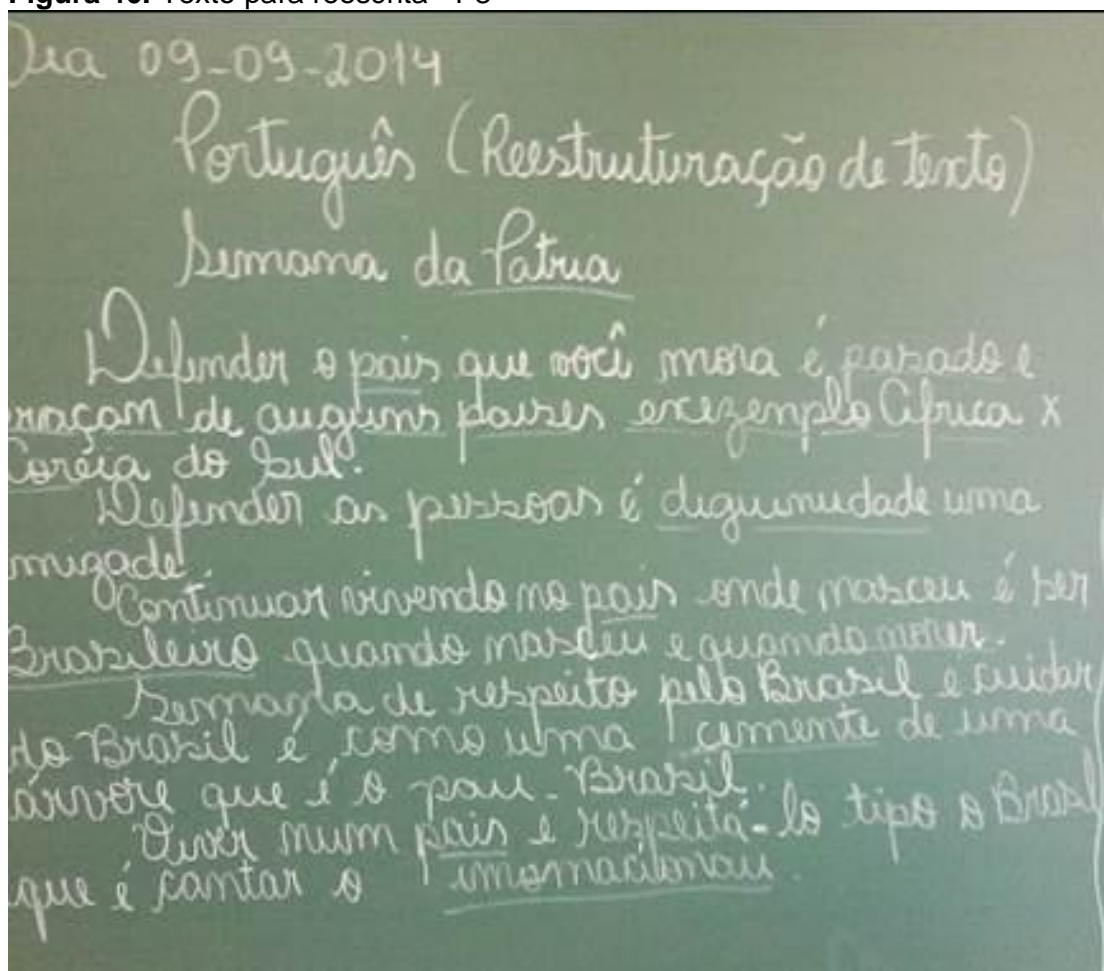 Figura 40: Texto para reescrita - P3
Dia 09-09-2014
Português (Reestruturação de texto)
Semana da Patria
Defender o pais que você mora é pasado e
maçam de auguns paises exezemplo África x
Coréia do Sul.
Defender as pessoas é diguinidade uma
mizade.
Continuar vivendo no pais onde nasceu é ser
Brasileiro quando nasceu e quando morer.
Semana de respeito pelo Brasil e cuidar
do Brasil é como uma cemente de uma
árvore que é o pau-Brasil.
Viver num pais é respeitá-lo tipo o Brasil
que é cantar o inonacionau.